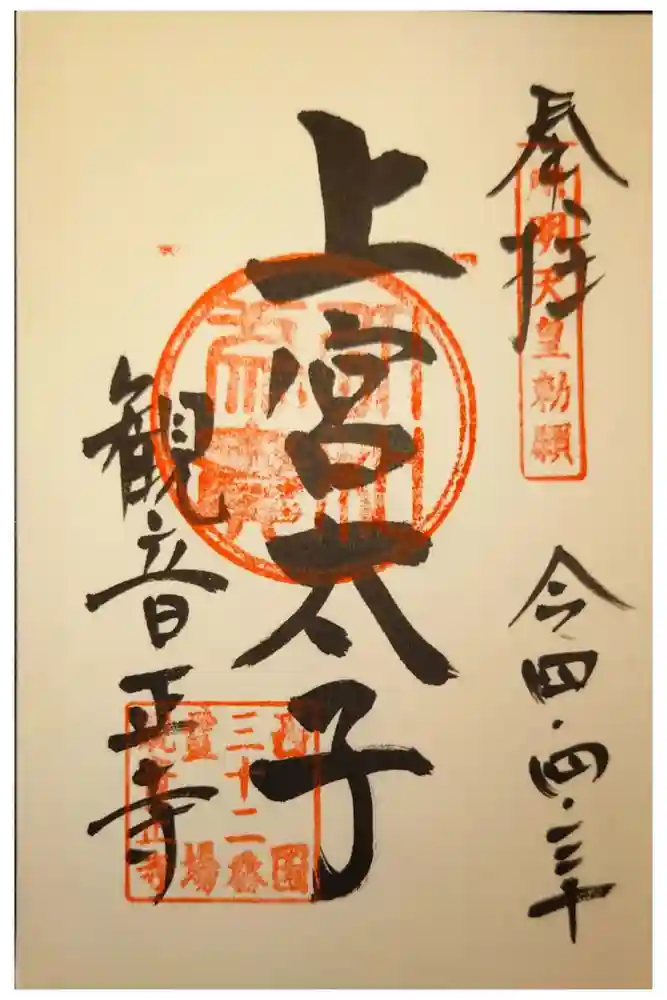 奉拝
用明天皇勅願
今四・四・三十
上宮太子
観音正寺
西国
三十二番
霊場
観音正寺